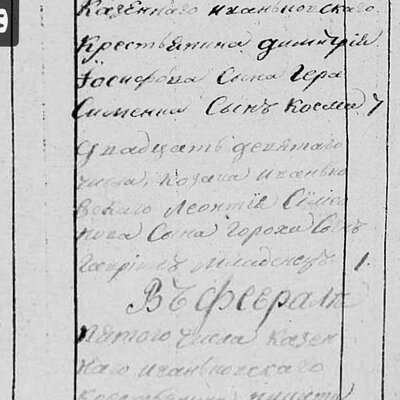 Казеннаго иваньковскаго
Крестьянина димитрія
Іосифова Сына Гера
Сименка Сынъ Косма 7
Двадцать девятаго
числа, козака иванько
вскаго Леонтія Сіме
нова Сына Горохи Сынъ
Гавріилъ младенецъ 1.
Въ февралѣ
Пятого числа Казен
наго иваньковскаго